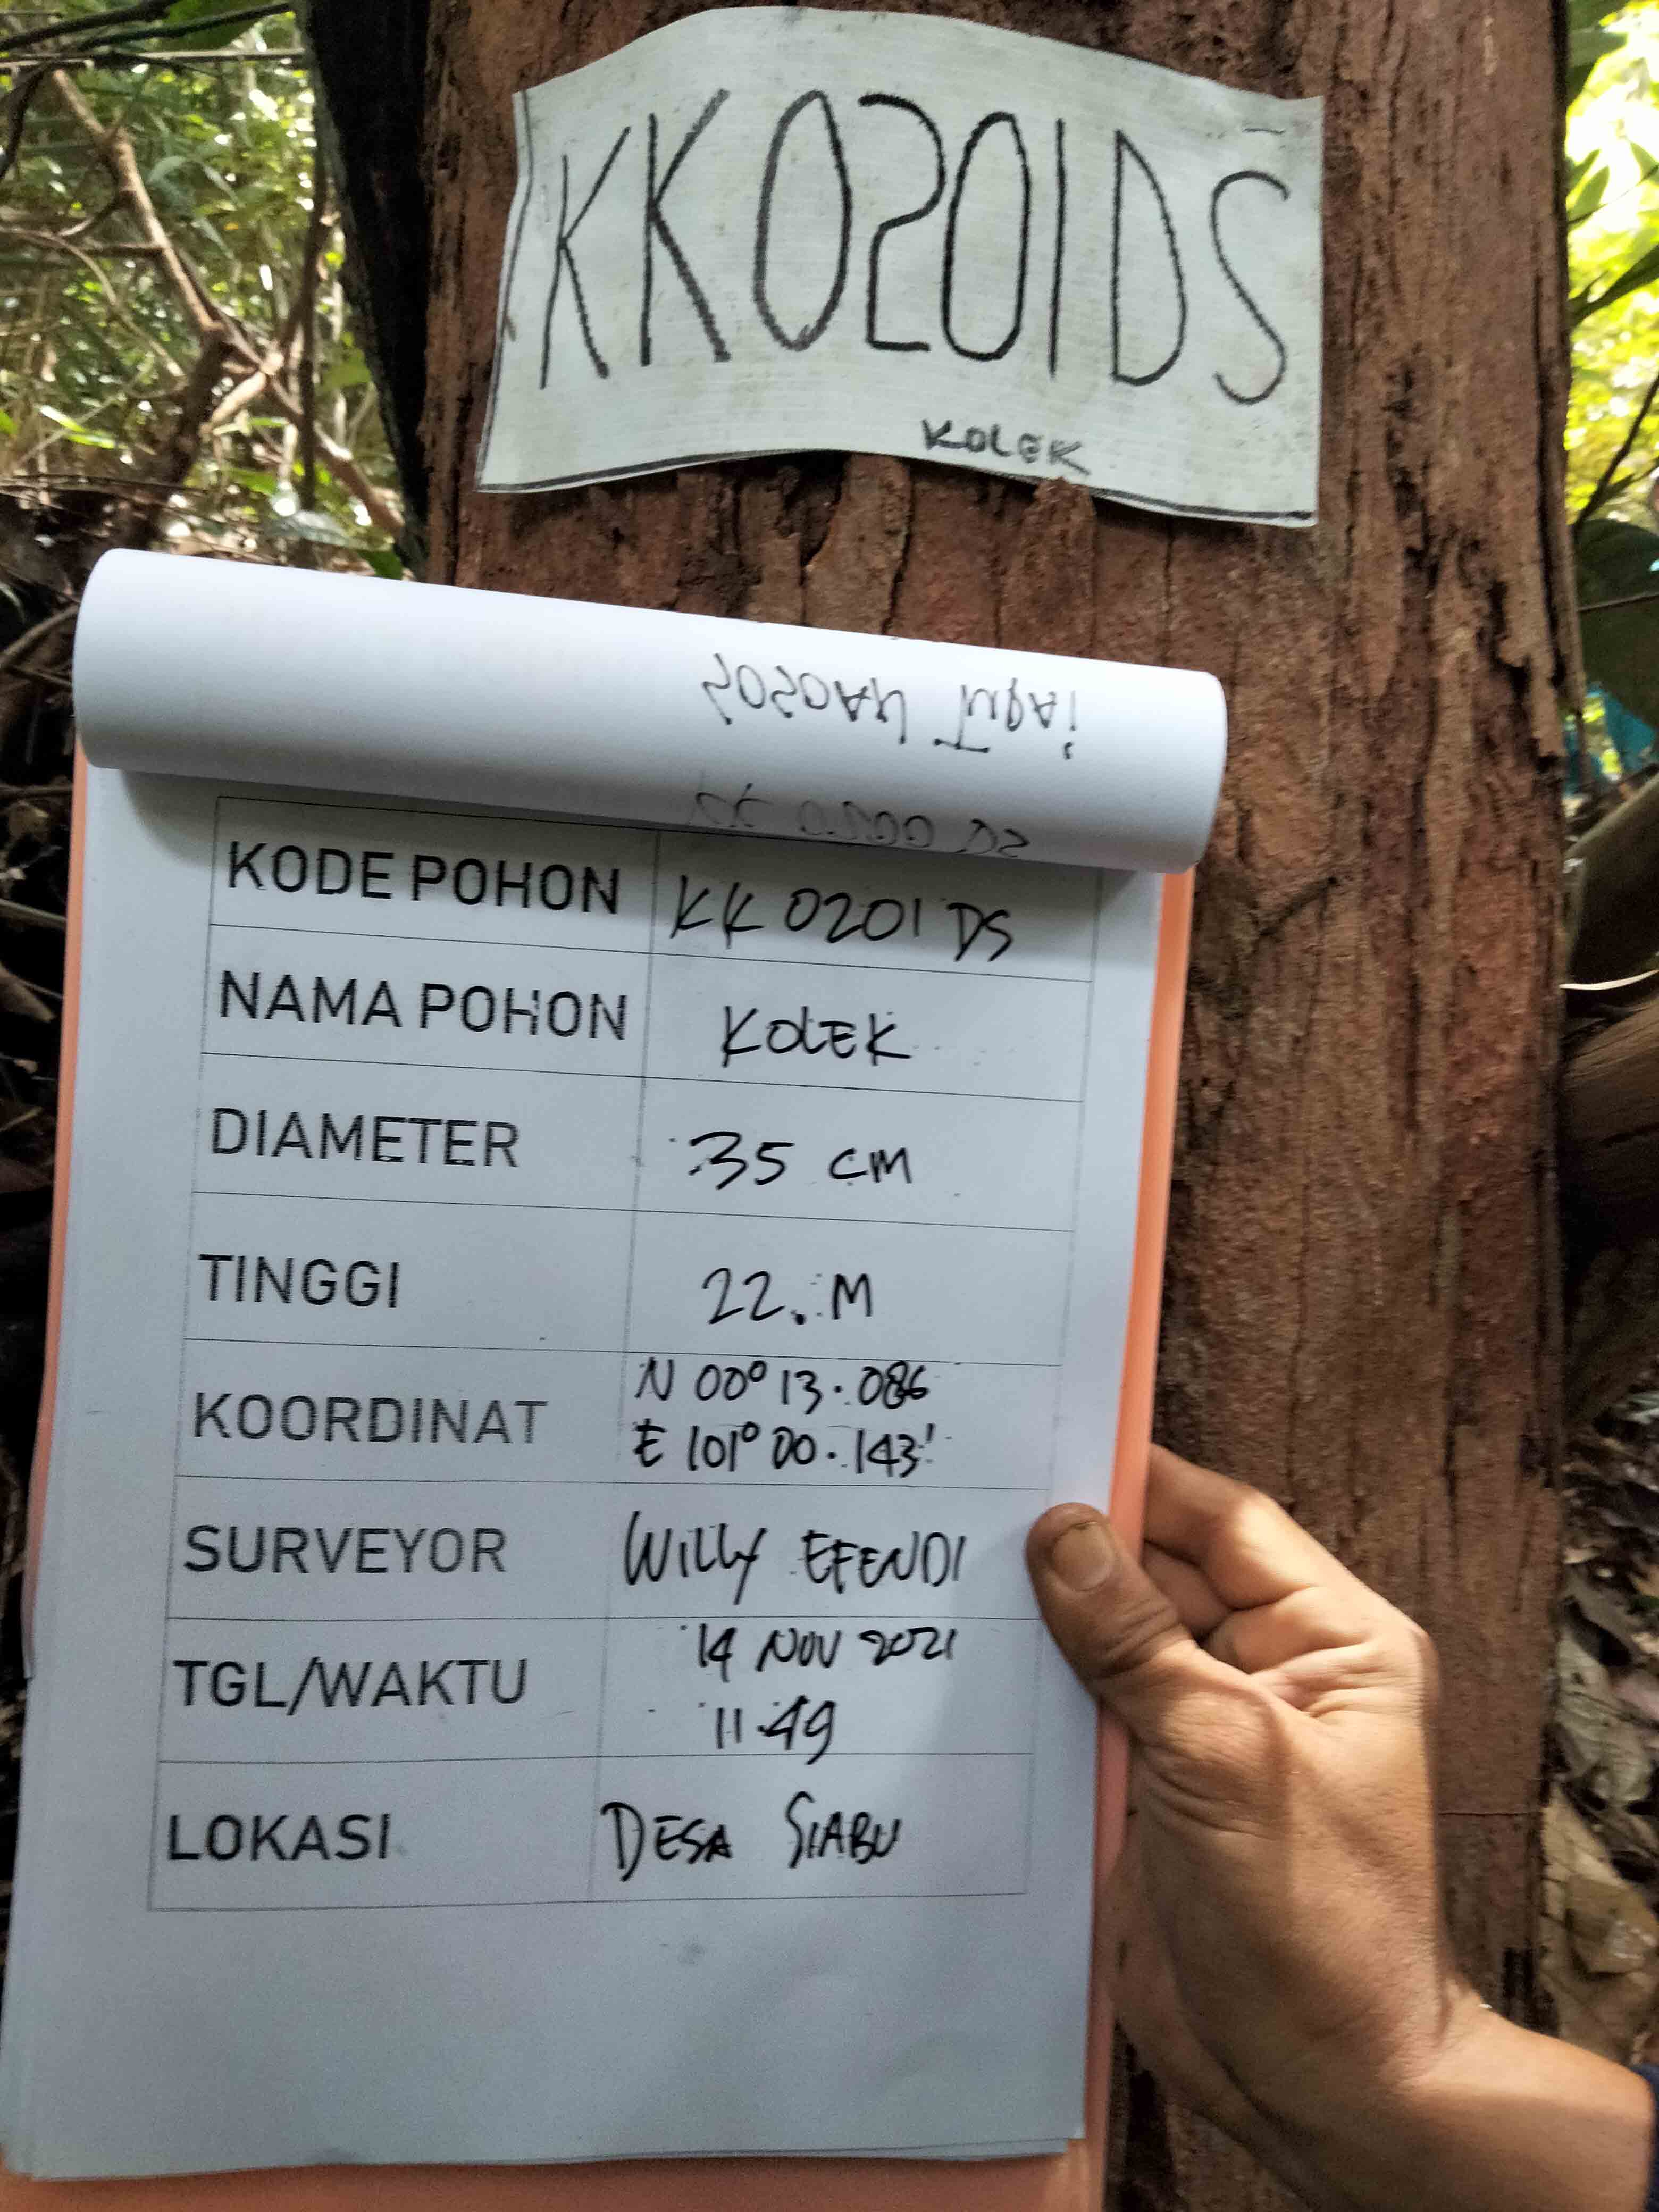 KK0201DS
KOLEK
KODE POHON KK 0201 DS
NAMA POHON KOLEK
DIAMETER 35 CM
TINGGI 22. M
KOORDINAT N 00° 13.086
E 101° 00.143'
SURVEYOR WILLY EFENDI
TGL/WAKTU 14 NOV 2021
11.49
LOKASI DESA SIABU